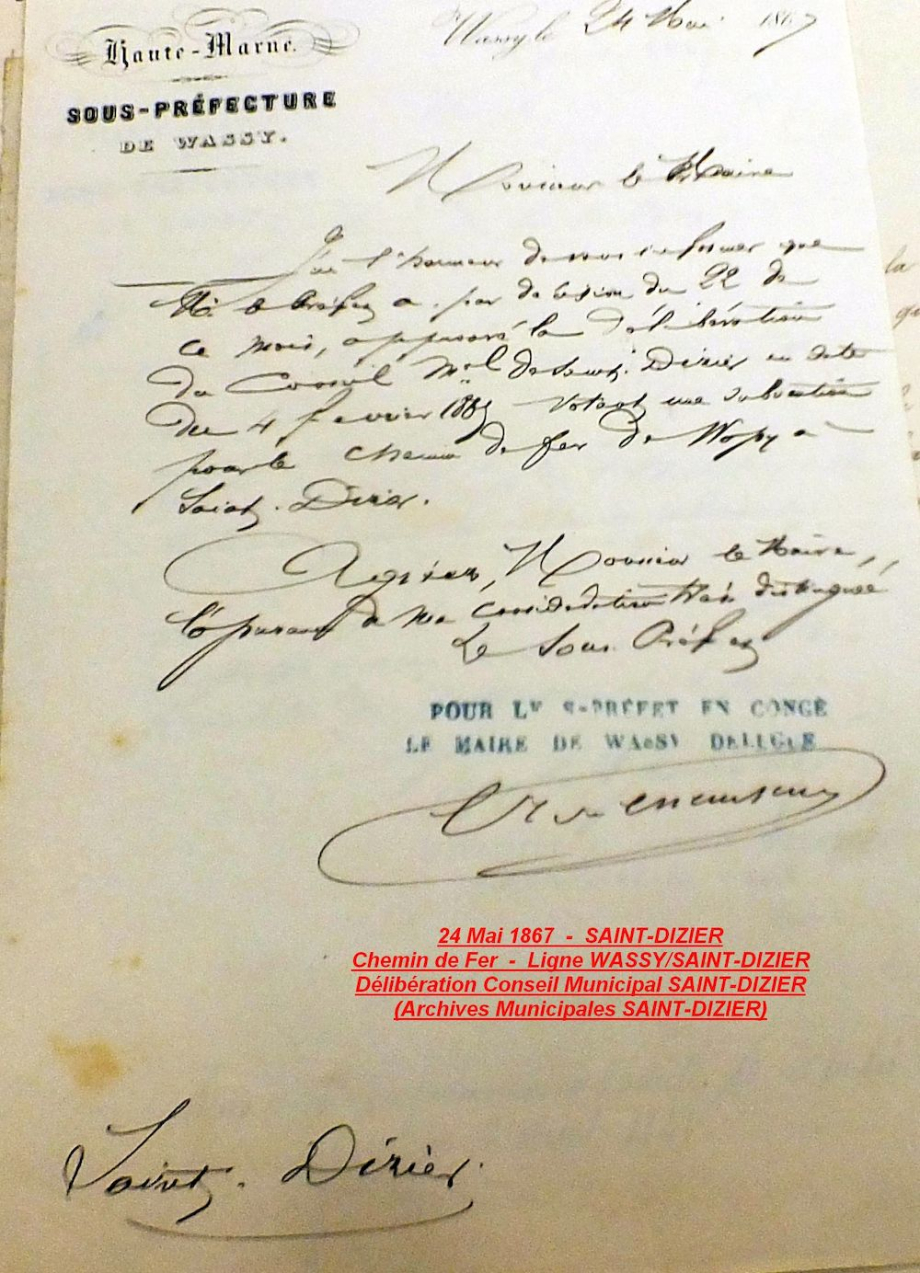 Haute-Marne.
SOUS-PRÉFECTURE
DE WASSY.
Wassy, le 24 Mai 1867
Monsieur le Maire
J'ai l'honneur de vous informer que
Mr le Préfet a, par décision du 22 de
ce mois, approuvé la délibération
du Conseil Mal de Saint-Dizier en date
du 4 février votant une subvention
pour le chemin de fer de Wassy à
Saint-Dizier.
Agréez, Monsieur le Maire,
l'assurance de ma considération très distinguée
Le Sous-Préfet
POUR LE S-PRÉFET EN CONGÉ
LE MAIRE DE WASSY DÉLÉGUÉ
24 Mai 1867 - SAINT-DIZIER
Chemin de Fer - Ligne WASSY/SAINT-DIZIER
Délibération Conseil Municipal SAINT-DIZIER
(Archives Municipales SAINT-DIZIER)
Saint-Dizier.